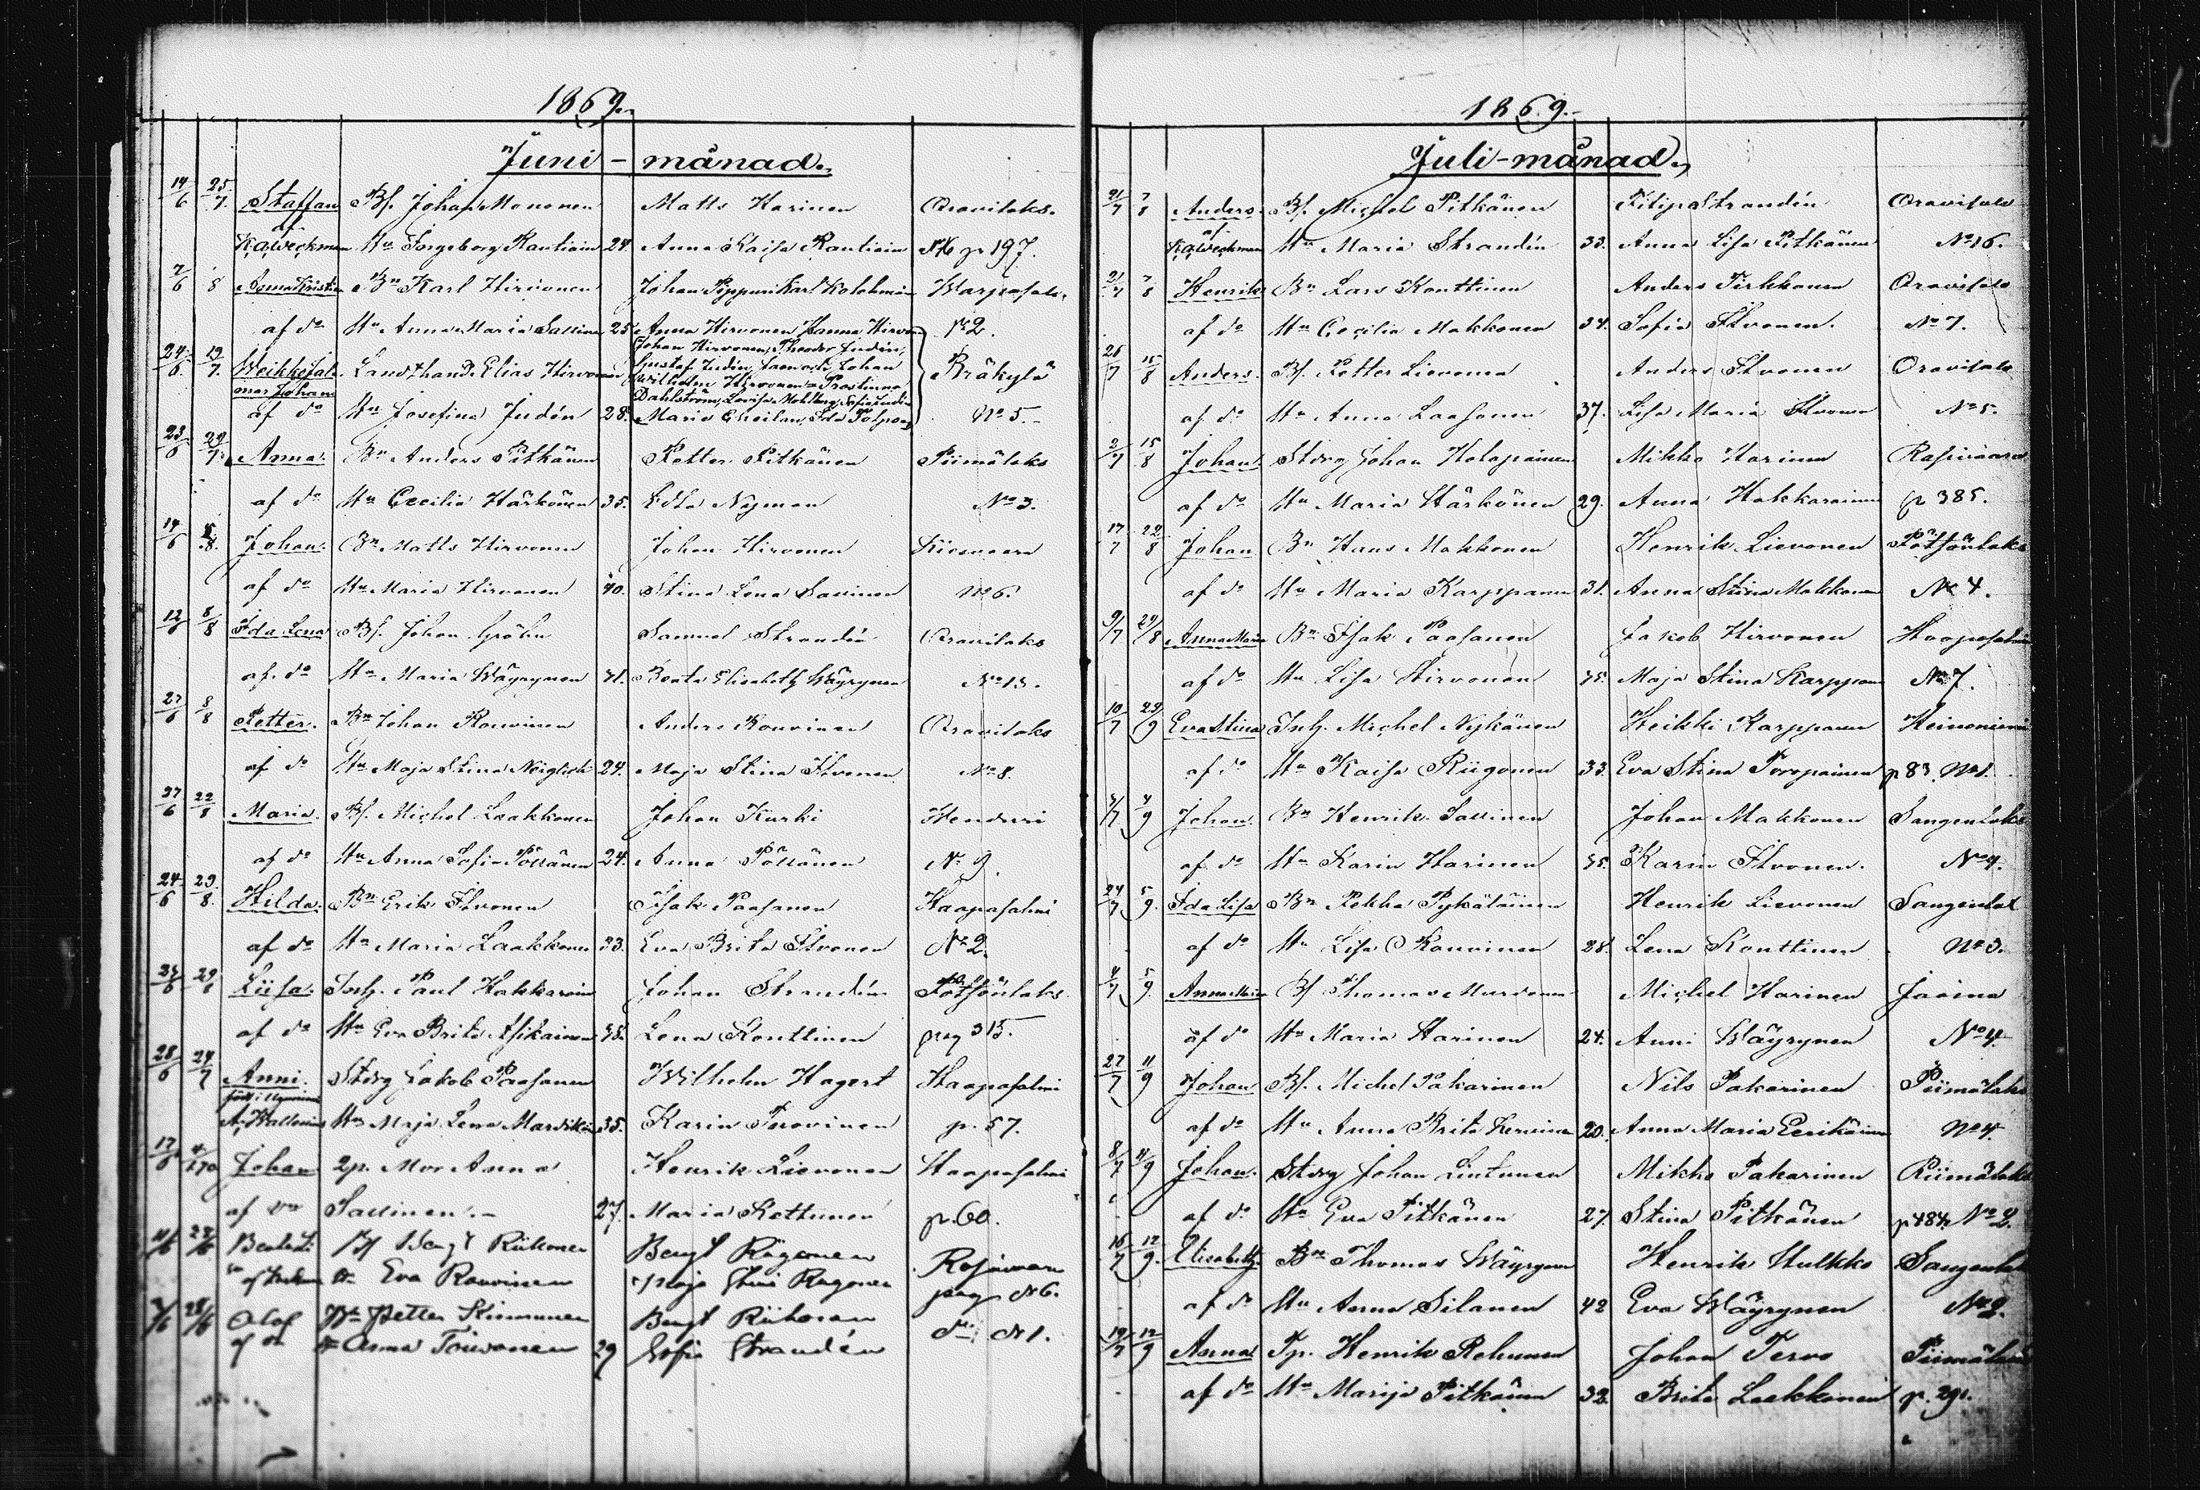 1869.
Juni-månad.
14/6 25/7 Staffan Bf. Johan Mononen Matts Harinen Oravilaks.
af K.a. Weckman Hu Ingeborg Rautiain 24. Anna Kaisa Rautiain p 197.
7/6 8 Bn Karl Hirvonen Johan Pippuri Karl Kolehmain
af do Hu Anna Maria Sallinen 25. Anna Hirvonen Hanna Hirvon No 2.
Johan Hirvonen, Theodor Judén,
24/6 19/7 Landthand. Elias Hirvonen Gustaf Judén, Johan Bräkylä
Wilhelm Hirvonen
Johan Dahlström, Lovisa
af do Hu Josefina Judén 28. Maria Ida No 5.
23/6 Anna. Bn Anders Pitkänen Petter Pitkänen Piimälaks
af do Hu Cecilia Härkönen 35. Edla Nyman No 3.
14/6 Johan. Bn Matts Hirvonen Johan Hirvonen
af do Hu Maria Hirvonen 40. Stina Lena Savinen No 6
12/6 8/8 Ida Lena Bf. Johan Gröhn Samuel Strandén Oravilaks
af do Hu Maria Wäyrynen 41. Beata Elisabeth Wäyrynen No 13.
27/6 8/8 Petter. Bn Johan Rouvinen Anders Rouvinen Oravilaks
af do Hu Maja Stina 24. Maja Stina Ihvonen No 8.
27/6 22/8 Maria. Bf. Michel Laakkonen Johan Kurki
af do Hu Anna Sofia Pöllänen 24. Anna Pöllänen No 9.
24/6 29/8 Hilda. Bn Erik Ihvonen Isak Paasonen Haapasalmi
af do Hu Maria Laakkonen 33. Eva Brita Ihvonen No 2.
25/6 29/8 Liisa. Inh. Paul Hakkarain Johan Strandén Pötsönlaks
af do Hu Eva Brita Asikainen 38. Lena Konttinen pag 315.
28/6 24/7 Anni. Storg Jakob Paasonen Wilhelm Hagert Haapasalmi
Hu Maja Lena Mardikain 35. Karin Turovinen p. 57.
17/6 Johan 2p. Mor Anna Henrik Lievonen Haapasalmi
af Sallinen. 27. Maria Kettunen p. 60.
Bf Bengt Riikonen Bengt Riigonen Rasivaara
Hu Eva Rouvinen Maja Stina Rigonen pag No 6.
28/6 Olof Bn Petter Kinnunen Bengt Riikonen do No 1.
af do Hu Anna Toivonen 29 Sofia Strandén
1869.
Juli-månad.
21/7 7/8 Anders. Bf. Michel Pitkänen Filip Strandén Oravisalo
af K.a. Weckman Hu Maria Strandén 33. Anna Lisa Pitkänen No 16.
21/7 7/8 Henrik Bn Lars Konttinen Anders Tirkkonen Oravisalo
af do Hu Cecilia Makkonen 34. Sofia Ihvonen. No 7.
21/7 15/8 Anders. Bf. Petter Lievonen Anders Ihvonen Oravisalo
af do Hu Anna Laasonen 37. Lisa Maria Ihvonen No 5.
2/7 15/8 Johan. Storg Johan Holopainen Mikko Harinen Rasivaara
af do Hu Maria Härkönen 29. Anna Hakkarainen p 385.
17/7 22/8 Johan Bn Hans Makkonen Henrik Lievonen Pötsönlaks
af do Hu Maria Karppanen 31. Anna Stina Makkonen No 4.
9/7 29/8 Anna Maria Bn Isak Paasonen Jakob Hirvonen Haapasalmi
af do Hu Lisa Hirvonen 35. Maja Stina Karppan No 7.
10/7 29/9 Eva Stina Inh. Michel Nykänen Heikki Karppanen Heinoniemi
af do Hu Kaisa Riigonen 33. Eva Stina Toropainen p 83. No 1.
4/7 4/9 Johan. Bn Henrik Sallinen Johan Makkonen Sangenlaks
af do Hu Karin Harinen 35. Karin Ihvonen. No 4.
24/7 5/9. Ida Lisa Bn Pekka Pykäläinen Henrik Lievonen Sangenlak
af do Hu Lisa Rouvinen 28. Lena Konttinen No 3.
4/7 5/9. Anna Maria Bf Thomas Michel Harinen Jaama
af do Hu Maria Harinen 24. Anni Wäyrynen No 4.
27/7 11/9 Johan Bf. Michel Pakarinen Nils Pakarinen Piimälaks
af do Hu Anna Brita Hervinen 20. Anna Maria Eerikäinen No 4.
8/7 11/9 Johan. Storg Johan Lintunen Mikko Pakarinen Piimälaks
af do Hu Eva Pitkänen 27. Stina Pitkänen p 484 No 2.
16/7 12/9. Elisabeth. Bn Thomas Wäyrynen Henrik Hulkko Sangenlak
af do Hu Anna Silanen 42 Eva Wäyrynen No 2.
19/7 12/9 Anna Tp. Henrik Rehunen Johan Tervo Piimälaks
af do Hu Marija Pitkänen 32. Brita Laakkonen p. 291.